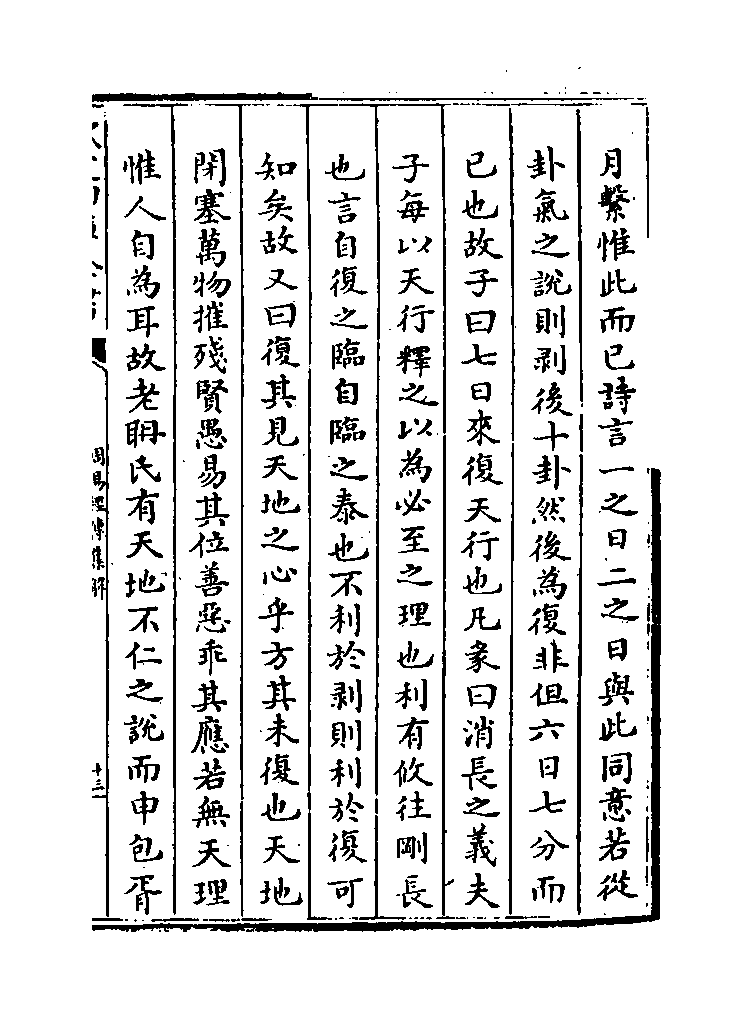 月繫惟此而已詩言一之日二之日與此同意若從
卦氣之說則剥後十卦然後為復非但六日七分而
已也故子曰七日來復天行也凡彖曰消長之義夫
子每以天行釋之以為必至之理也利有攸往剛長
也言自復之臨自臨之泰也不利於剥則利於復可
知矣故又曰復其見天地之心乎方其未復也天地
閉塞萬物摧殘賢愚易其位善惡乖其應若無天理
惟人自為耳故老耼氏有天地不仁之說而申包胥
周易經傳集解
十三